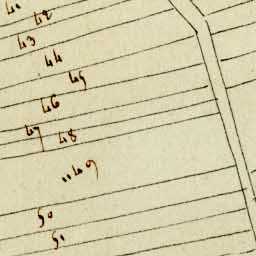 41
42
43
44
45
46
47
48
49
50
51